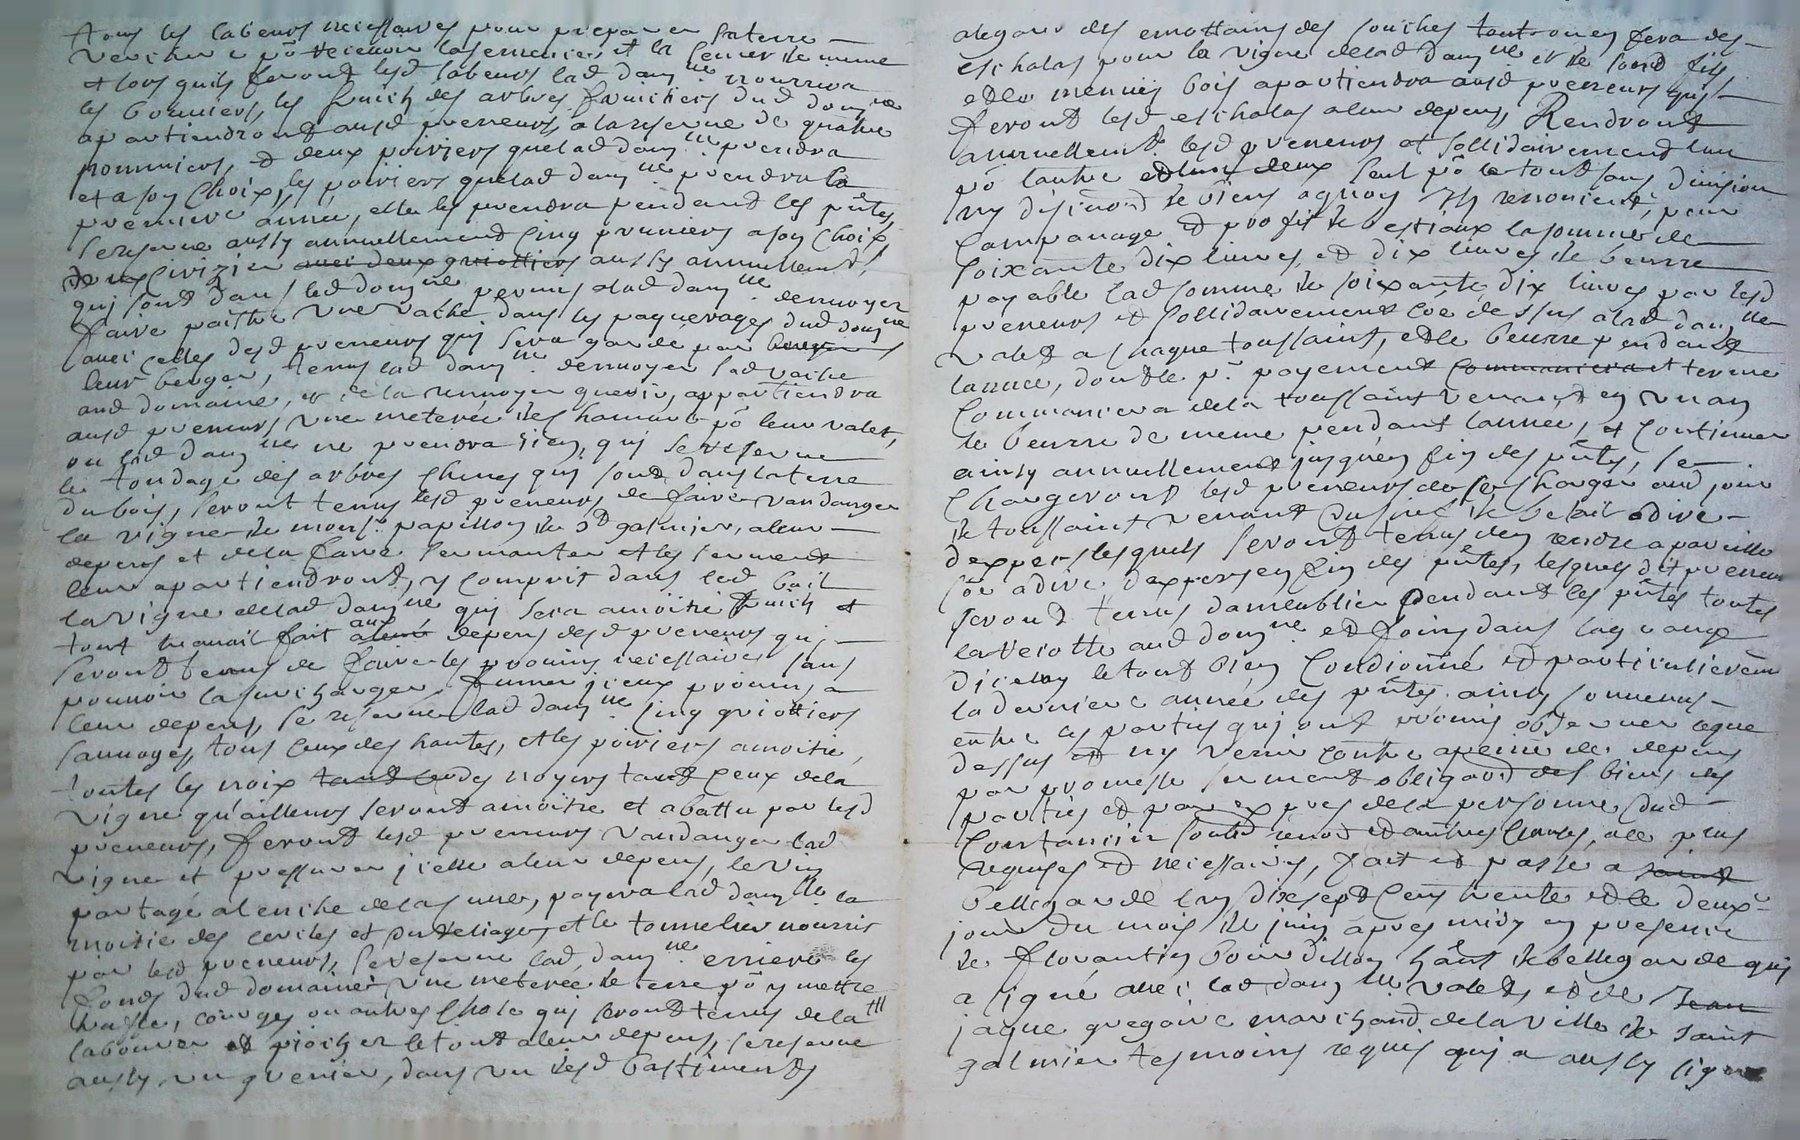 tous les labeurs necessaires pour preparer la terre
verchere pō recevoir la semence, et la semer de meme
et lors quils feront lesd labeurs lad dam^lle nourrira
les bouviers, les fruich des arbres fruichiers dud dom^ne
apartiendront ausd preneurs, a la reserve de quatre
pommiers, et deux poiriers que lad dam^lle prendra
et a son choix, les poiriers que lad dam^lle prendra la
premiere année, elle les prendra pendant les pn̄tes,
se reserve aussy annuellement cinq pruniers a son choix
aussy annullement,
qui sont dans led dom^ne permis a lad dam^lle denvoyer
faire paitre une vache dans les paquerages dud dom^ne
avec celles desd preneurs qui sera gardé par
leur berger, tenus lad dam^lle denvoyer lad vache
aud domaine, et de la renvoyer querir, appartiendra
ausd preneurs une meterée de chanvre pō leur valet,
ou lad dam^lle ne prendra rien, qui se reserve
le tondage des arbres chenes qui sont dans la terre
du bois, seront tenus lesd preneurs de faire vandanger
la vigne de mons^r papillon de S^t galmier, a leur
depens et de la faire sermanter et les serments
leur apartiendront, y comprit dans led bail
la vigne de lad dam^lle qui sera amoitié fruich et
tout travail fait aux depens desd preneurs qui
seront tenus de faire les provins necessaires sans
pouvoir la surcharger, fumer jceux provins a
leur depens, se reserve lad dam^lle cinq griottiers
sauvages, tous ceux des hautes, et les poiriers amoitié,
toutes les noix des noyers tant ceux de la
vigne qu'ailleurs seront amoitié et abattu par lesd
preneurs, feront lesd preneurs vandanger lad
vigne et pressurer jcelle a leur depens, le vin
partagé a lenche de la cuve, payera lad dam^lle la
moitie des cercles et du reliage, et le tonnelier nourrit
par lesd preneurs, se reserve lad dam^lle erriere les
fonds dud domaine une meterée de terre pō y mettre
trasle, courges ou autres chose qui seront tenus de la
labourer et piocher le tout a leur depens, se reserve
aussy un grenier, dans un desd bastiments
alegard des emottains des souches tout on en fera des
eschalas pour la vigne de lad dam^lle et de sond fils,
et les menües bois apartiendra ausd preneurs qui
feront lesd eschalas a leur depens, Rendront
annuellem^t lesd preneurs et sollidairement lun
pō lautre et lun deux seul pō le tout sans division
ny discution de biens a quoy Ils renoncient, pour
lampanage et profit de bestiaux la somme de
soixante dix livres, et dix livres de beurre
payable lad somme de soixante dix livres par lesd
preneurs et sollidairement cōe dessus a lad dam^lle
valet a chaque toussaint, et le beurre pendant
lannée, dont le p^r payement terme
commancera de la toussaint venant en un an
le beurre de meme pendant lannée, et continuer
ainsy annuellement jusquen fin des pn̄tes, se
chargeront lesd preneurs aud jour
de toussaint venant du prix de betail a dire
dexpers lesquels seront tenus den rendre a pareille
a dire dexpers en fin des pn̄tes, lesquels dt preneurs
seront tenus dameublier pendant les pn̄tes toutes
la recolte aud dom^ne et foins dans la grange
dicelluy le tout bien condionné et particulierem^t
la derniere année des pn̄tes. ainsy convenus
entre les parties qui ont promis observer ce que
dessus et ny venir contre a peine de depens
par promesse serment obligaōn des biens des
parties et par expres de la personne dud
et autres clauses, a ce plus
requises et necessaires, fait et passé a
bellegarde lan dix sept cens trente et le deux^e
jour du mois de juin apres midy en presence
de florantin bourdillon hânt de bellegarde qui
a signé avec lad dam^lle valet, et de
jaque gregoire marchand de la ville de saint
galmier tesmoins requis qui a aussy signé